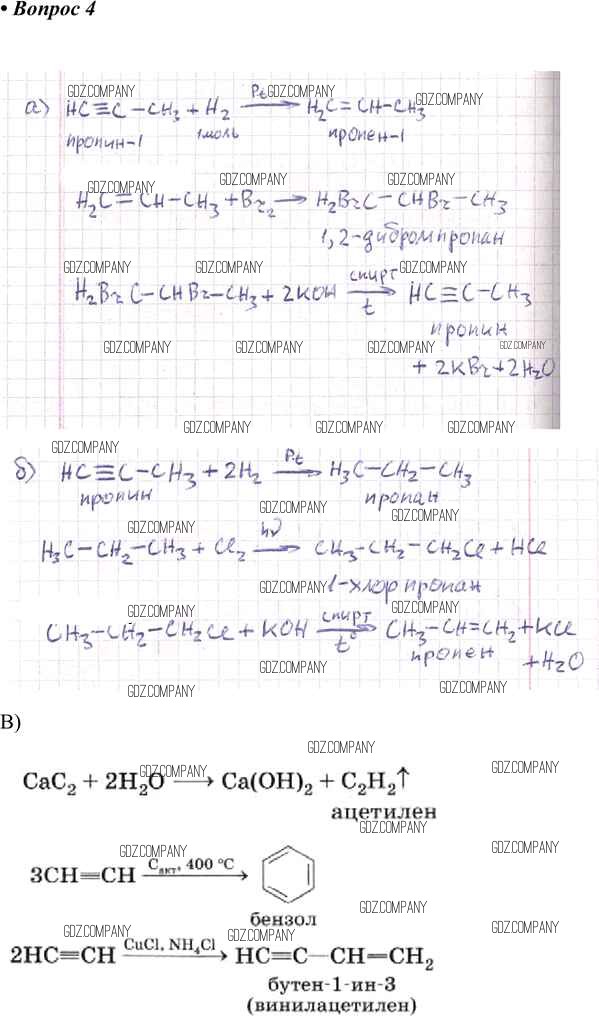 • Вопрос 4
а) HC≡C–CH₃ + H₂ —Pt→ H₂C=CH–CH₃
пропин-1 1моль пропен-1
H₂C=CH–CH₃ + Br₂ → H₂BrC–CHBr–CH₃
1,2-дибромпропан
H₂BrC–CHBr–CH₃ + 2KOH —спирт, t→ HC≡C–CH₃
пропин
+ 2KBr + 2H₂O
б) HC≡C–CH₃ + 2H₂ —Pt→ H₃C–CH₂–CH₃
пропин пропан
H₃C–CH₂–CH₃ + Cl₂ —hν→ CH₃–CH₂–CH₂Cl + HCl
1-хлорпропан
CH₃–CH₂–CH₂Cl + KOH —спирт, t°→ CH₃–CH=CH₂ + KCl
пропен + H₂O
В)
CaC₂ + 2H₂O ⟶ Ca(OH)₂ + C₂H₂↑
ацетилен
3CH≡CH —Cакт, 400 °C→
бензол
2HC≡CH —CuCl, NH₄Cl→ HC≡C–CH=CH₂
бутен-1-ин-3
(винилацетилен)
GDZ.COMPANY